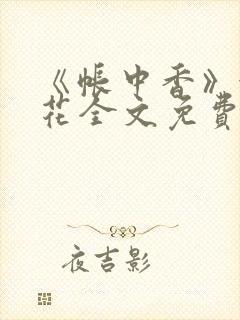 《帳中香》
花全文免費
夜吉影